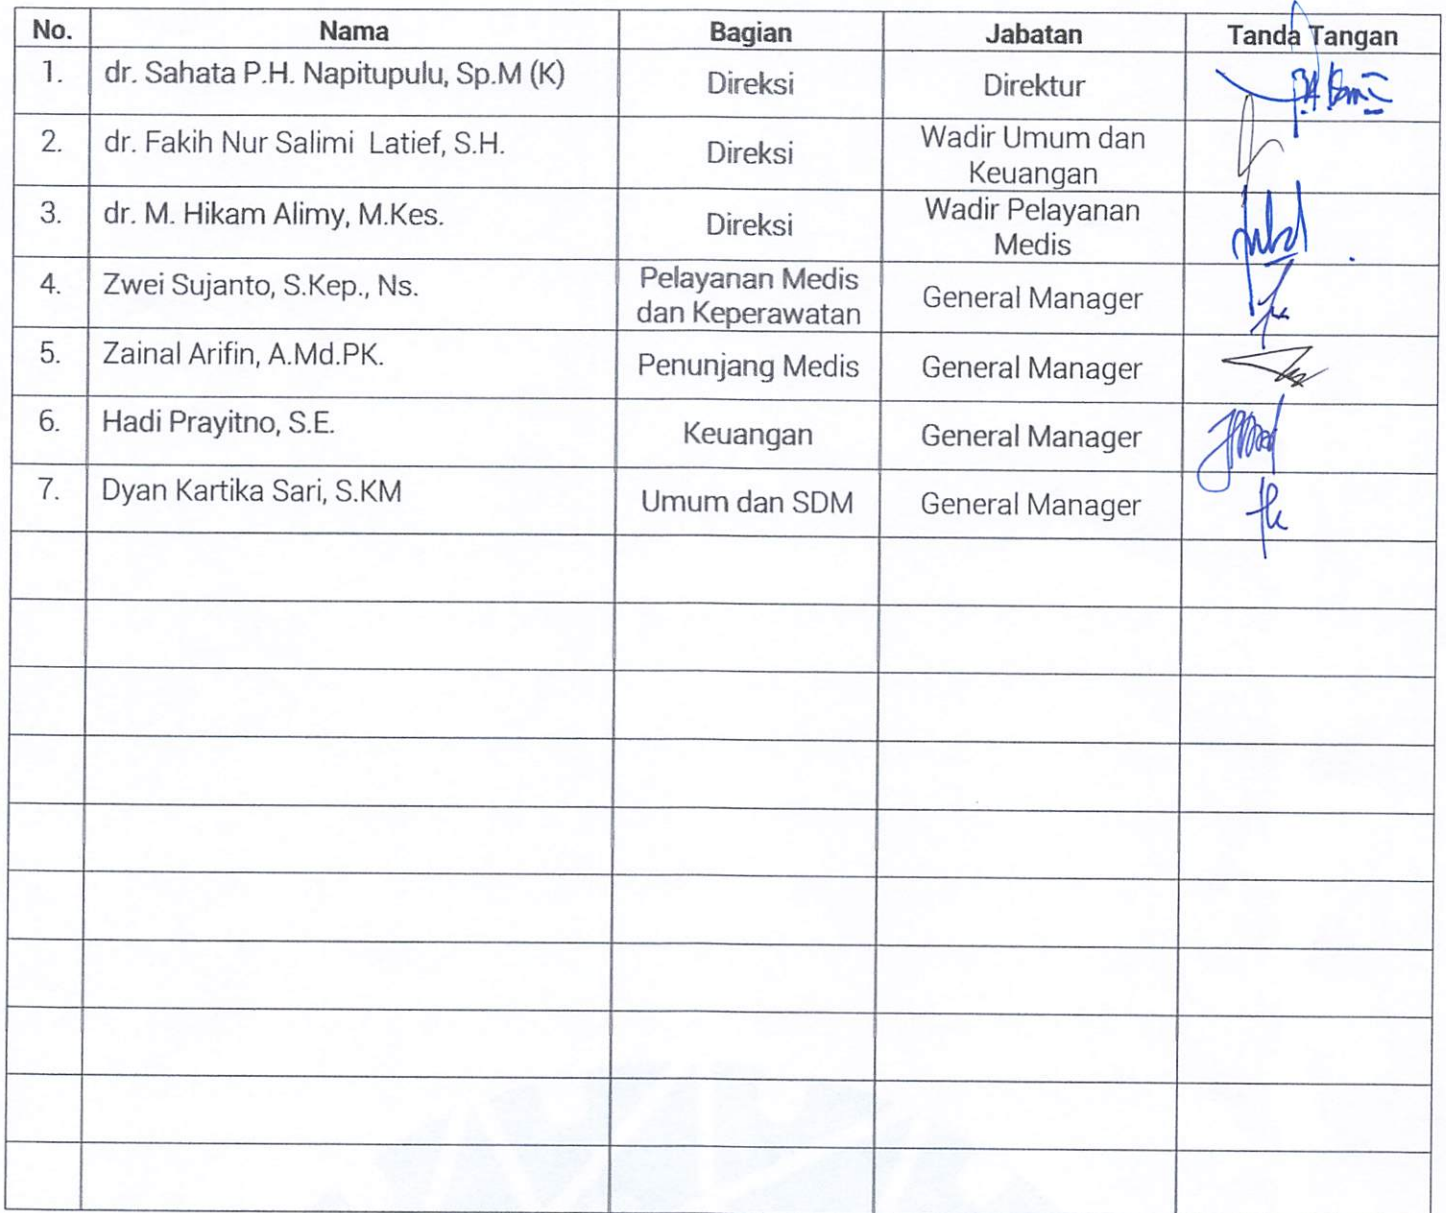 No. Nama Bagian Jabatan Tanda Tangan
1. dr. Sahata P.H. Napitupulu, Sp.M (K) Direksi Direktur
2. dr. Fakih Nur Salimi Latief, S.H. Direksi Wadir Umum dan
Keuangan
3. dr. M. Hikam Alimy, M.Kes. Direksi Wadir Pelayanan
Medis
4. Zwei Sujanto, S.Kep., Ns. Pelayanan Medis General Manager
dan Keperawatan
5. Zainal Arifin, A.Md.PK. Penunjang Medis General Manager
6. Hadi Prayitno, S.E. Keuangan General Manager
7. Dyan Kartika Sari, S.KM Umum dan SDM General Manager